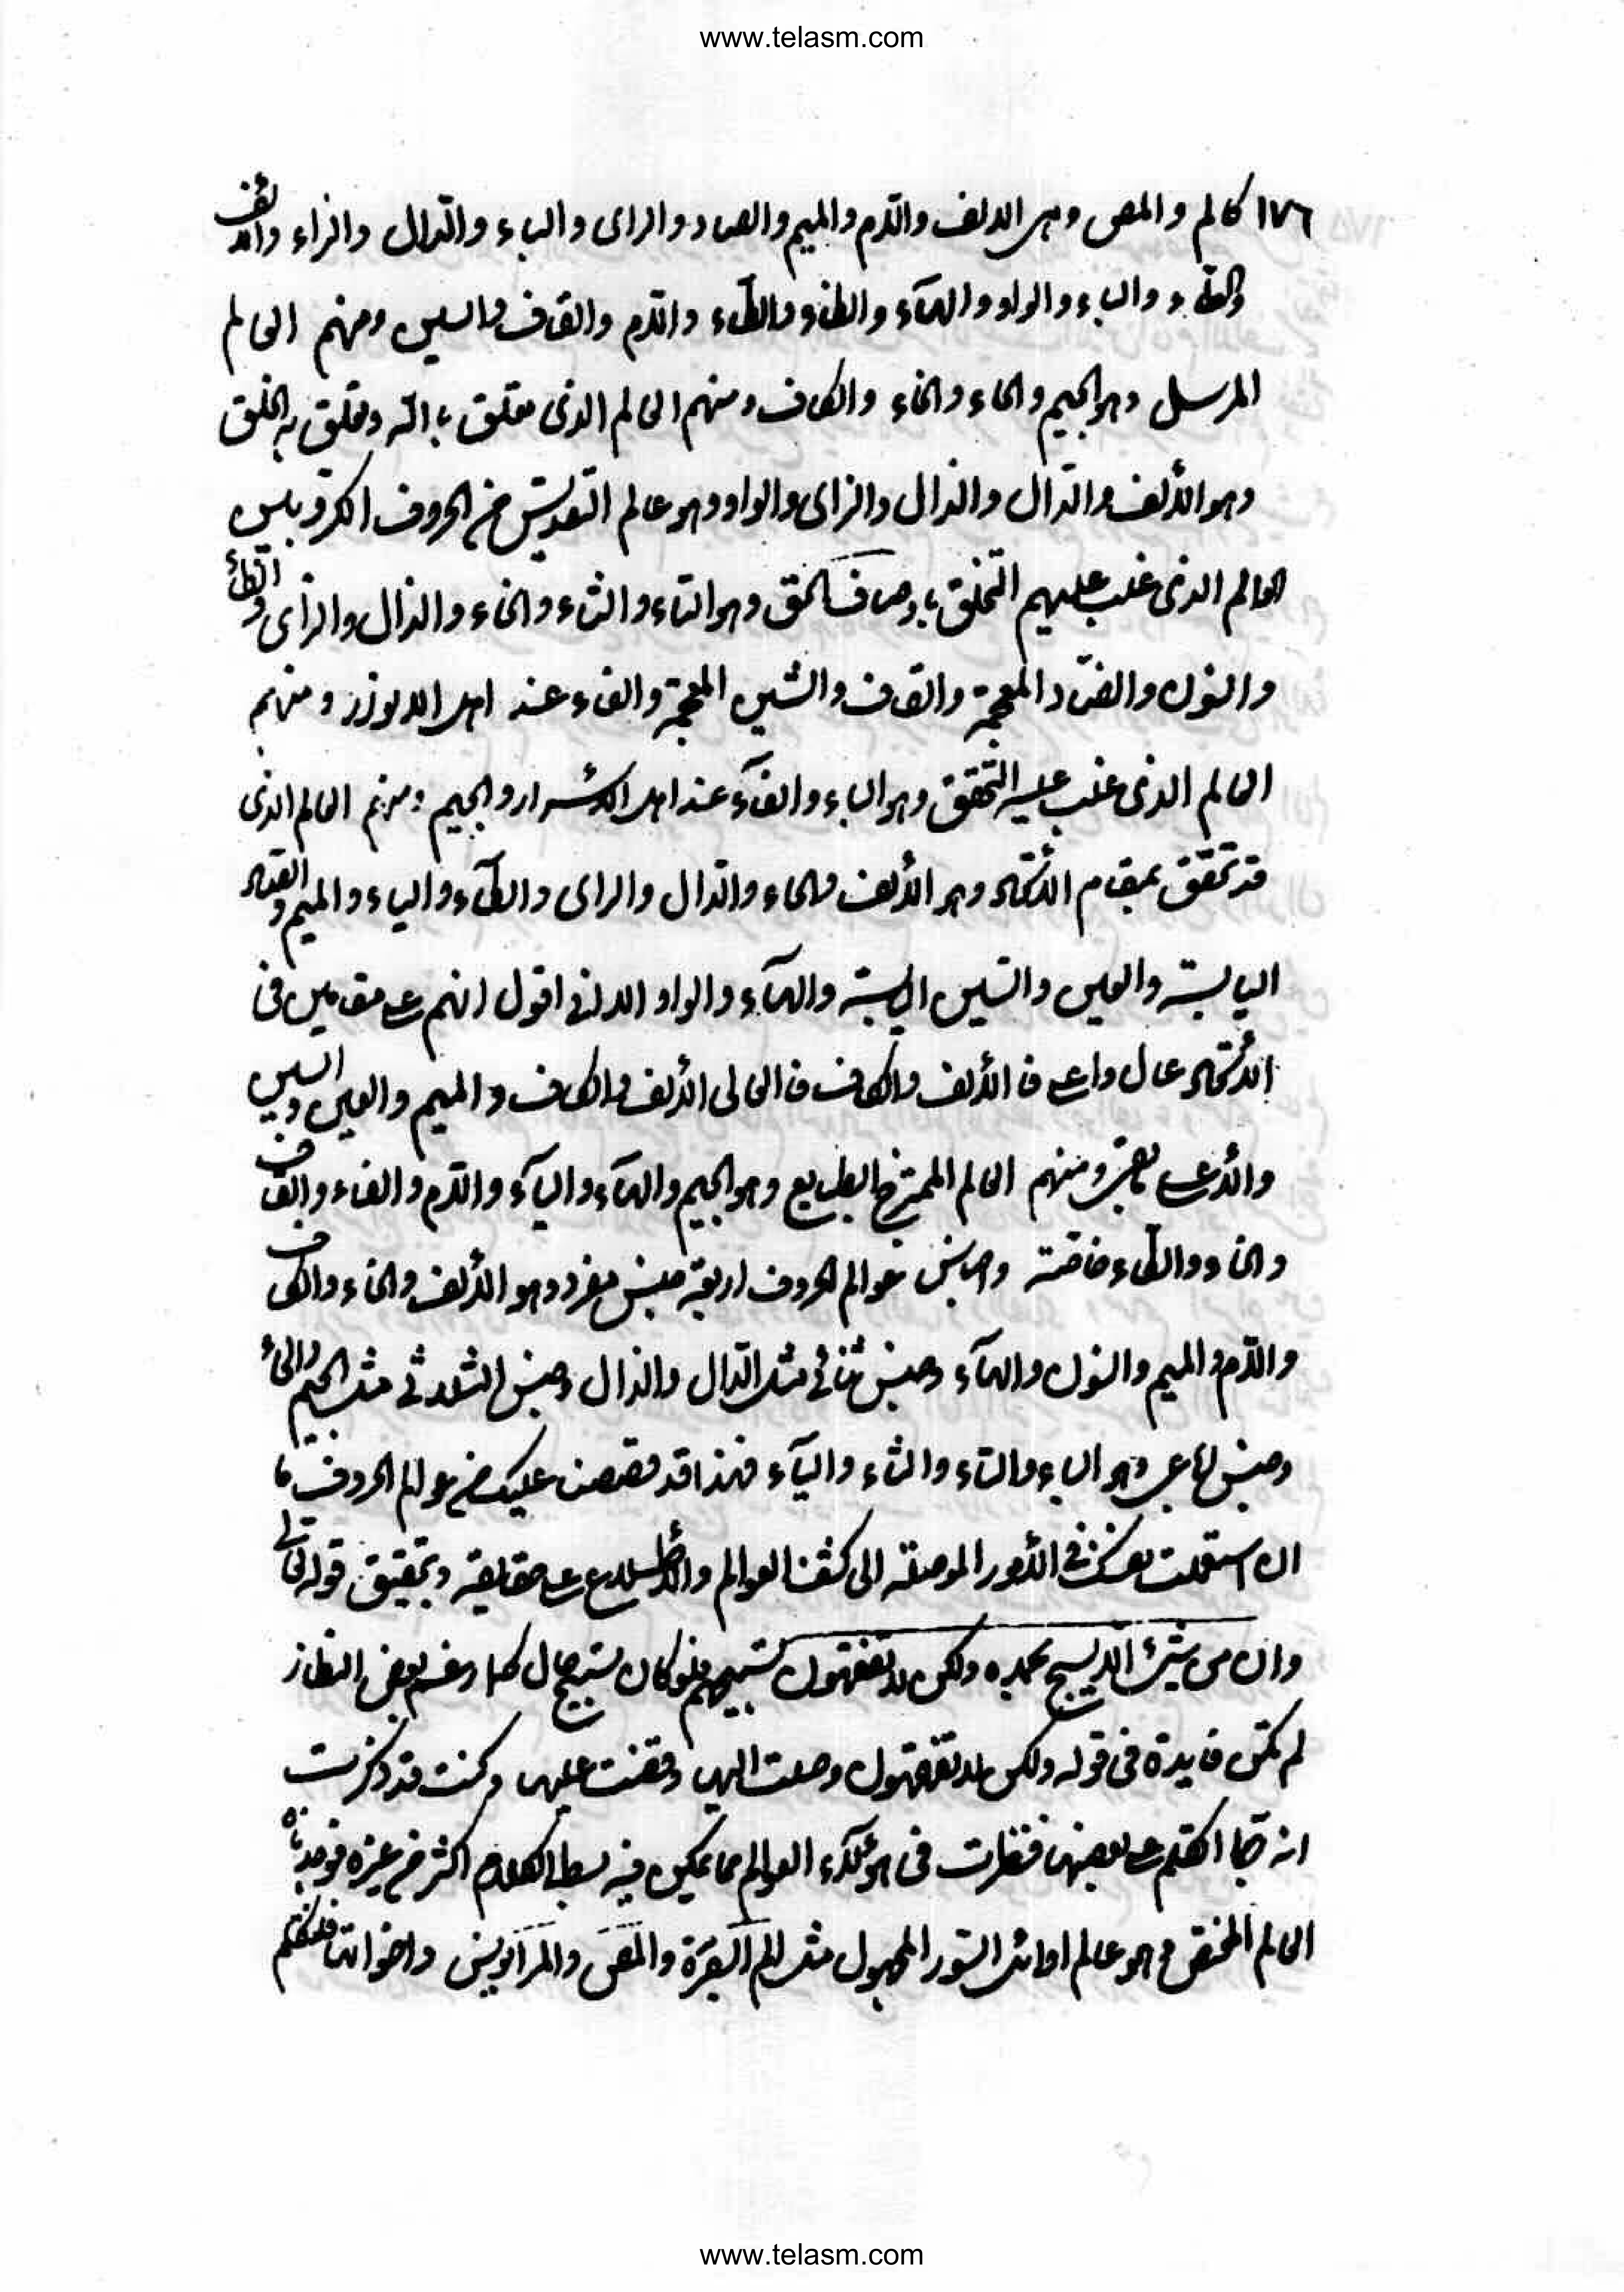 www.telasm.com
١٧٦ كالم والمص وهى الالف واللام والميم والصاد والراى والباء والدال والزاء والالف
والطاء والياء والواو والهاء والظاء والطاء واللام والقاف والسين ومنهم العالم
المرسل وهو الجيم والحاء والخاء والكاف ومنهم العالم الذى تعلق بالله وتعلق به الخلق
وهو الألف والدال والذال والزاى والواو وهو عالم التقديس من الحروف الكروبيين
العالم الذى غلب عليهم التخلق باوصاف الحق وهو التاء والثاء والخاء والذال والزاى والظاء
والنون والضاد المعجمة والقاف والشين المعجمة والفاء عند اهل الانوار ومنهم
العالم الذى غلب عليه التحقق وهو الباء والفآء عند اهل الأسرار والجيم ومنهم العالم الذى
قد تحقق بمقام الاتحاد وهو الألف والحاء والدال والراى والطآء والياء والميم والصاد
اليابسة والعين والسين اليابسة والهآء والواو الا انى اقول انهم على مقامين فى
الأتحاد عال واعلى فالألف والكاف فالعالى الألف والكاف والميم والعين والسين
والأعلى ومنهم العالم الممتزج الطبايع وهو الجيم والهآء واليآء واللام والفاء والقاف
والخاء والظاء خاصة واجناس عوالم الحروف اربعة جنس مفرد وهو الألف والكاف
واللام والميم والنون والهآء وجنس ثنائى مثل الدال والذال وجنس الثلاثى مثل الجيم والحاء والخاء
وجنس رباعى وهو الباء والتاء والثاء واليآء فهذا قد قصصنا عليك من عوالم الحروف ما
ان استعملت نفسك فى الأمور الموصلة الى كشف العوالم والأطلاع على حقايقه وتحقيق قوله تعالى
وان من شئ الا يسبح بحمده ولكن لا تفقهون تسبيحهم فلو كان تسبيح حال كما زعم بعض النظار
لم تكن فايدة فى قوله ولكن لا تفقهون وصلت اليها وقفت عليها وكنت قد ذكرت
انه ربما اتكلم على بعضها فنظرت فى هؤلآء العوالم مما يمكن فيه بسط الكلام اكثر من غيره فوجدناه
العالم المختص وهو عالم اوائل السور المجهول مثل الم البقرة والمص والر يونس واخواتها فلنتكلم
www.telasm.com